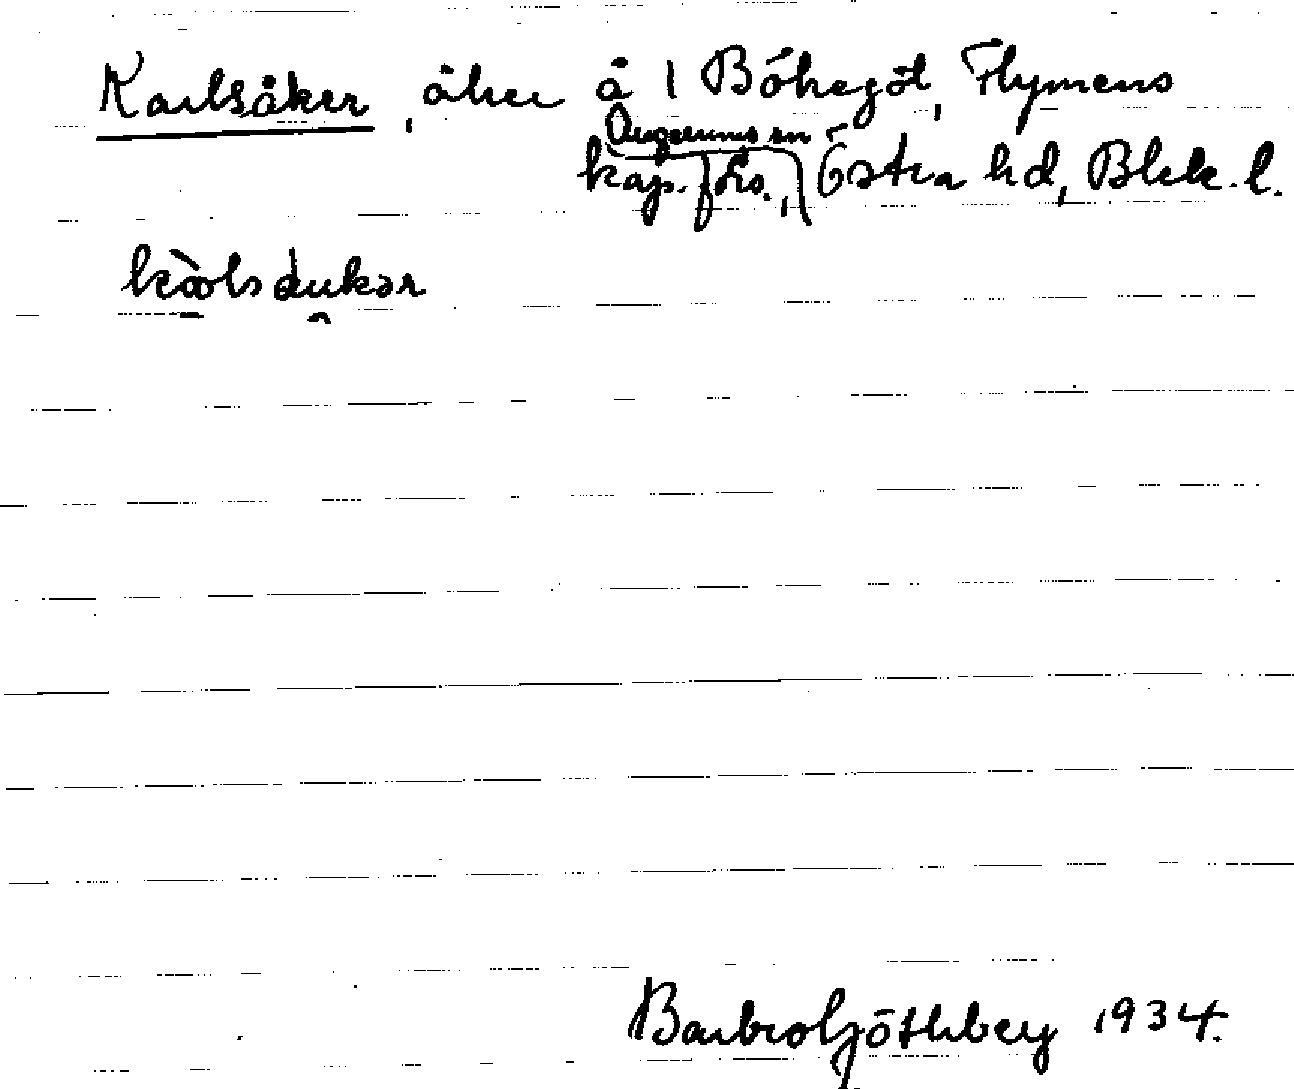 Karlsåker, åker å 1 Bökegöl, Flymens
Augerums sn
kap. förs., Östra hd, Blek. l.
Barbro Göthberg 1934.